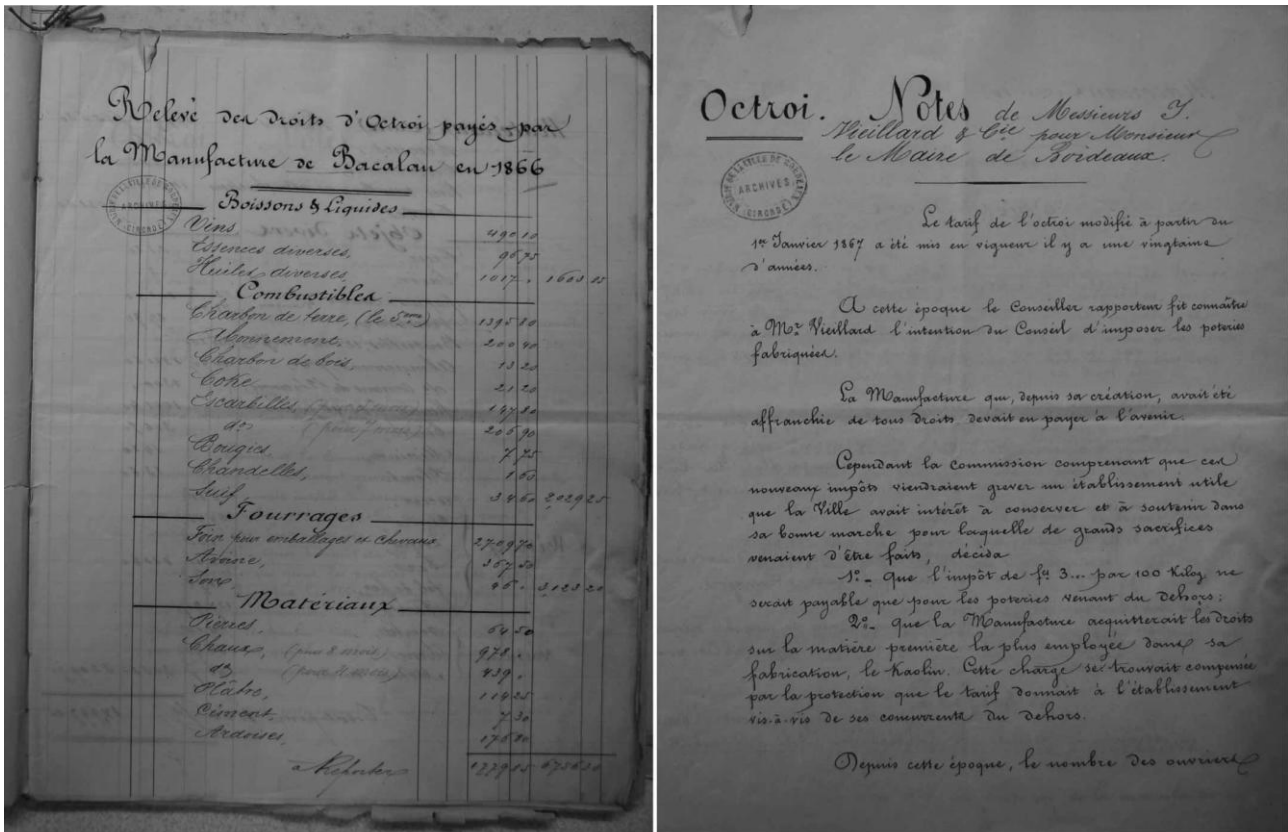 Relevé des droits d'Octroi payés par
la Manufacture de Bacalan en 1866
Boissons & Liquides
Vins 490 10
Essences diverses, 96 75
Huiles diverses, 1017 "
Combustibles
Charbon de terre, 1395 80
Abonnement, 200 40
Charbon de bois, 13 20
Coke 21 20
Escarbilles, 147 80
do 206 90
Bougies 7 75
Chandelles, 1 60
Suif 34 60 2,029 25
Fourrages
Foin pour emballages et chevaux 2709 70
Avoine, 367 50
Son,
Matériaux
Pierres, 64 50
Chaux, (pour 8 mois) 978 "
do (pour 4 mois) 439 "
Plâtre, 114 25
Ciment, 7 30
Ardoises, 176 80
à Reporter
MAIRIE DE LA VILLE DE BORDEAUX
ARCHIVES
(GIRONDE)
Octroi. Notes de Messieurs J.
Vieillard & Cie pour Monsieur
le Maire de Bordeaux.
MAIRIE DE LA VILLE DE BORDEAUX
ARCHIVES
(GIRONDE)
Le tarif de l'octroi modifié à partir du
1er Janvier 1867 a été mis en vigueur il y a une vingtaine
d'années.
A cette époque le Conseiller rapporteur fit connaître
à Mr Vieillard l'intention du Conseil d'imposer les poteries
fabriquées.
La Manufacture qui, depuis sa création, avait été
affranchie de tous droits devait en payer à l'avenir.
Cependant la commission comprenant que ces
nouveaux impôts viendraient grever un établissement utile
que la Ville avait intérêt à conserver et à soutenir dans
sa bonne marche pour laquelle de grands sacrifices
venaient d'être faits, décida
1o - Que l'impôt de fcs 3... par 100 Kilog. ne
serait payable que pour les poteries venant du dehors;
2o - que la Manufacture acquitterait les droits
sur la matière première la plus employée dans sa
fabrication, le Kaolin. Cette charge se trouvait compensée
par la protection que le tarif donnait à l'établissement
vis-à-vis de ses concurrents du dehors.
Depuis cette époque, le nombre des ouvriers